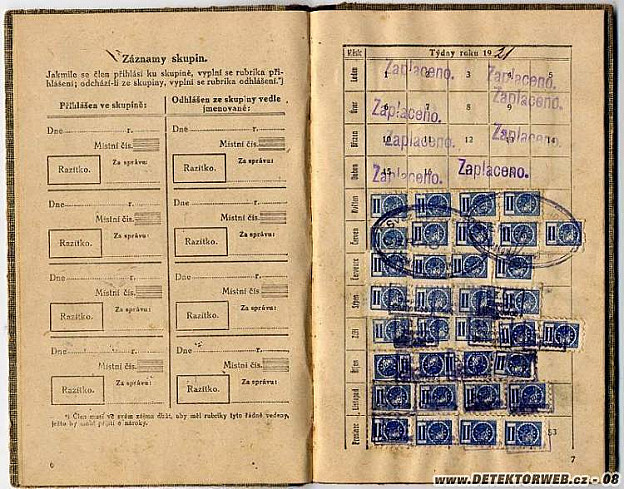 Záznamy skupin.
Jakmile se člen přihlásí ku skupině, vyplní se rubrika při-
hlášení; odchází-li ze skupiny, vyplní se rubrika odhlášení.*)
Přihlášen ve skupině:
Odhlášen ze skupiny vedle
jmenované:
Dne r.
Místní čís.
Razítko.
Za správu:
Dne r.
Místní čís.
Razítko.
Za správu:
Dne r.
Místní čís.
Razítko.
Za správu:
Dne r.
Místní čís.
Razítko.
Za správu:
Dne r.
Místní čís.
Razítko.
Za správu:
Dne r.
Místní čís.
Razítko.
Za správu:
Dne r.
Místní čís.
Razítko.
Za správu:
Dne r.
Místní čís.
Razítko.
Za správu:
*) Člen musí ve svém zájmu dbáti, aby měl rubriky tyto řádně vedeny,
ježto by mohl přijíti o nároky.
6
Měsíc
Týdny roku 1921
Leden
1 Zaplaceno. 3 Zaplaceno. 5
Únor
Zaplaceno. 7 8 9 Zaplaceno.
Březen
10 Zaplaceno. 12 13 Zaplaceno. 14
Duben
15 Zaplaceno. 16 Zaplaceno.
Květen
Červen
Července
Srpen
Září
Říjen
Listopad
Prosinec
53
7
www.DETEKTORWEB.cz - 08